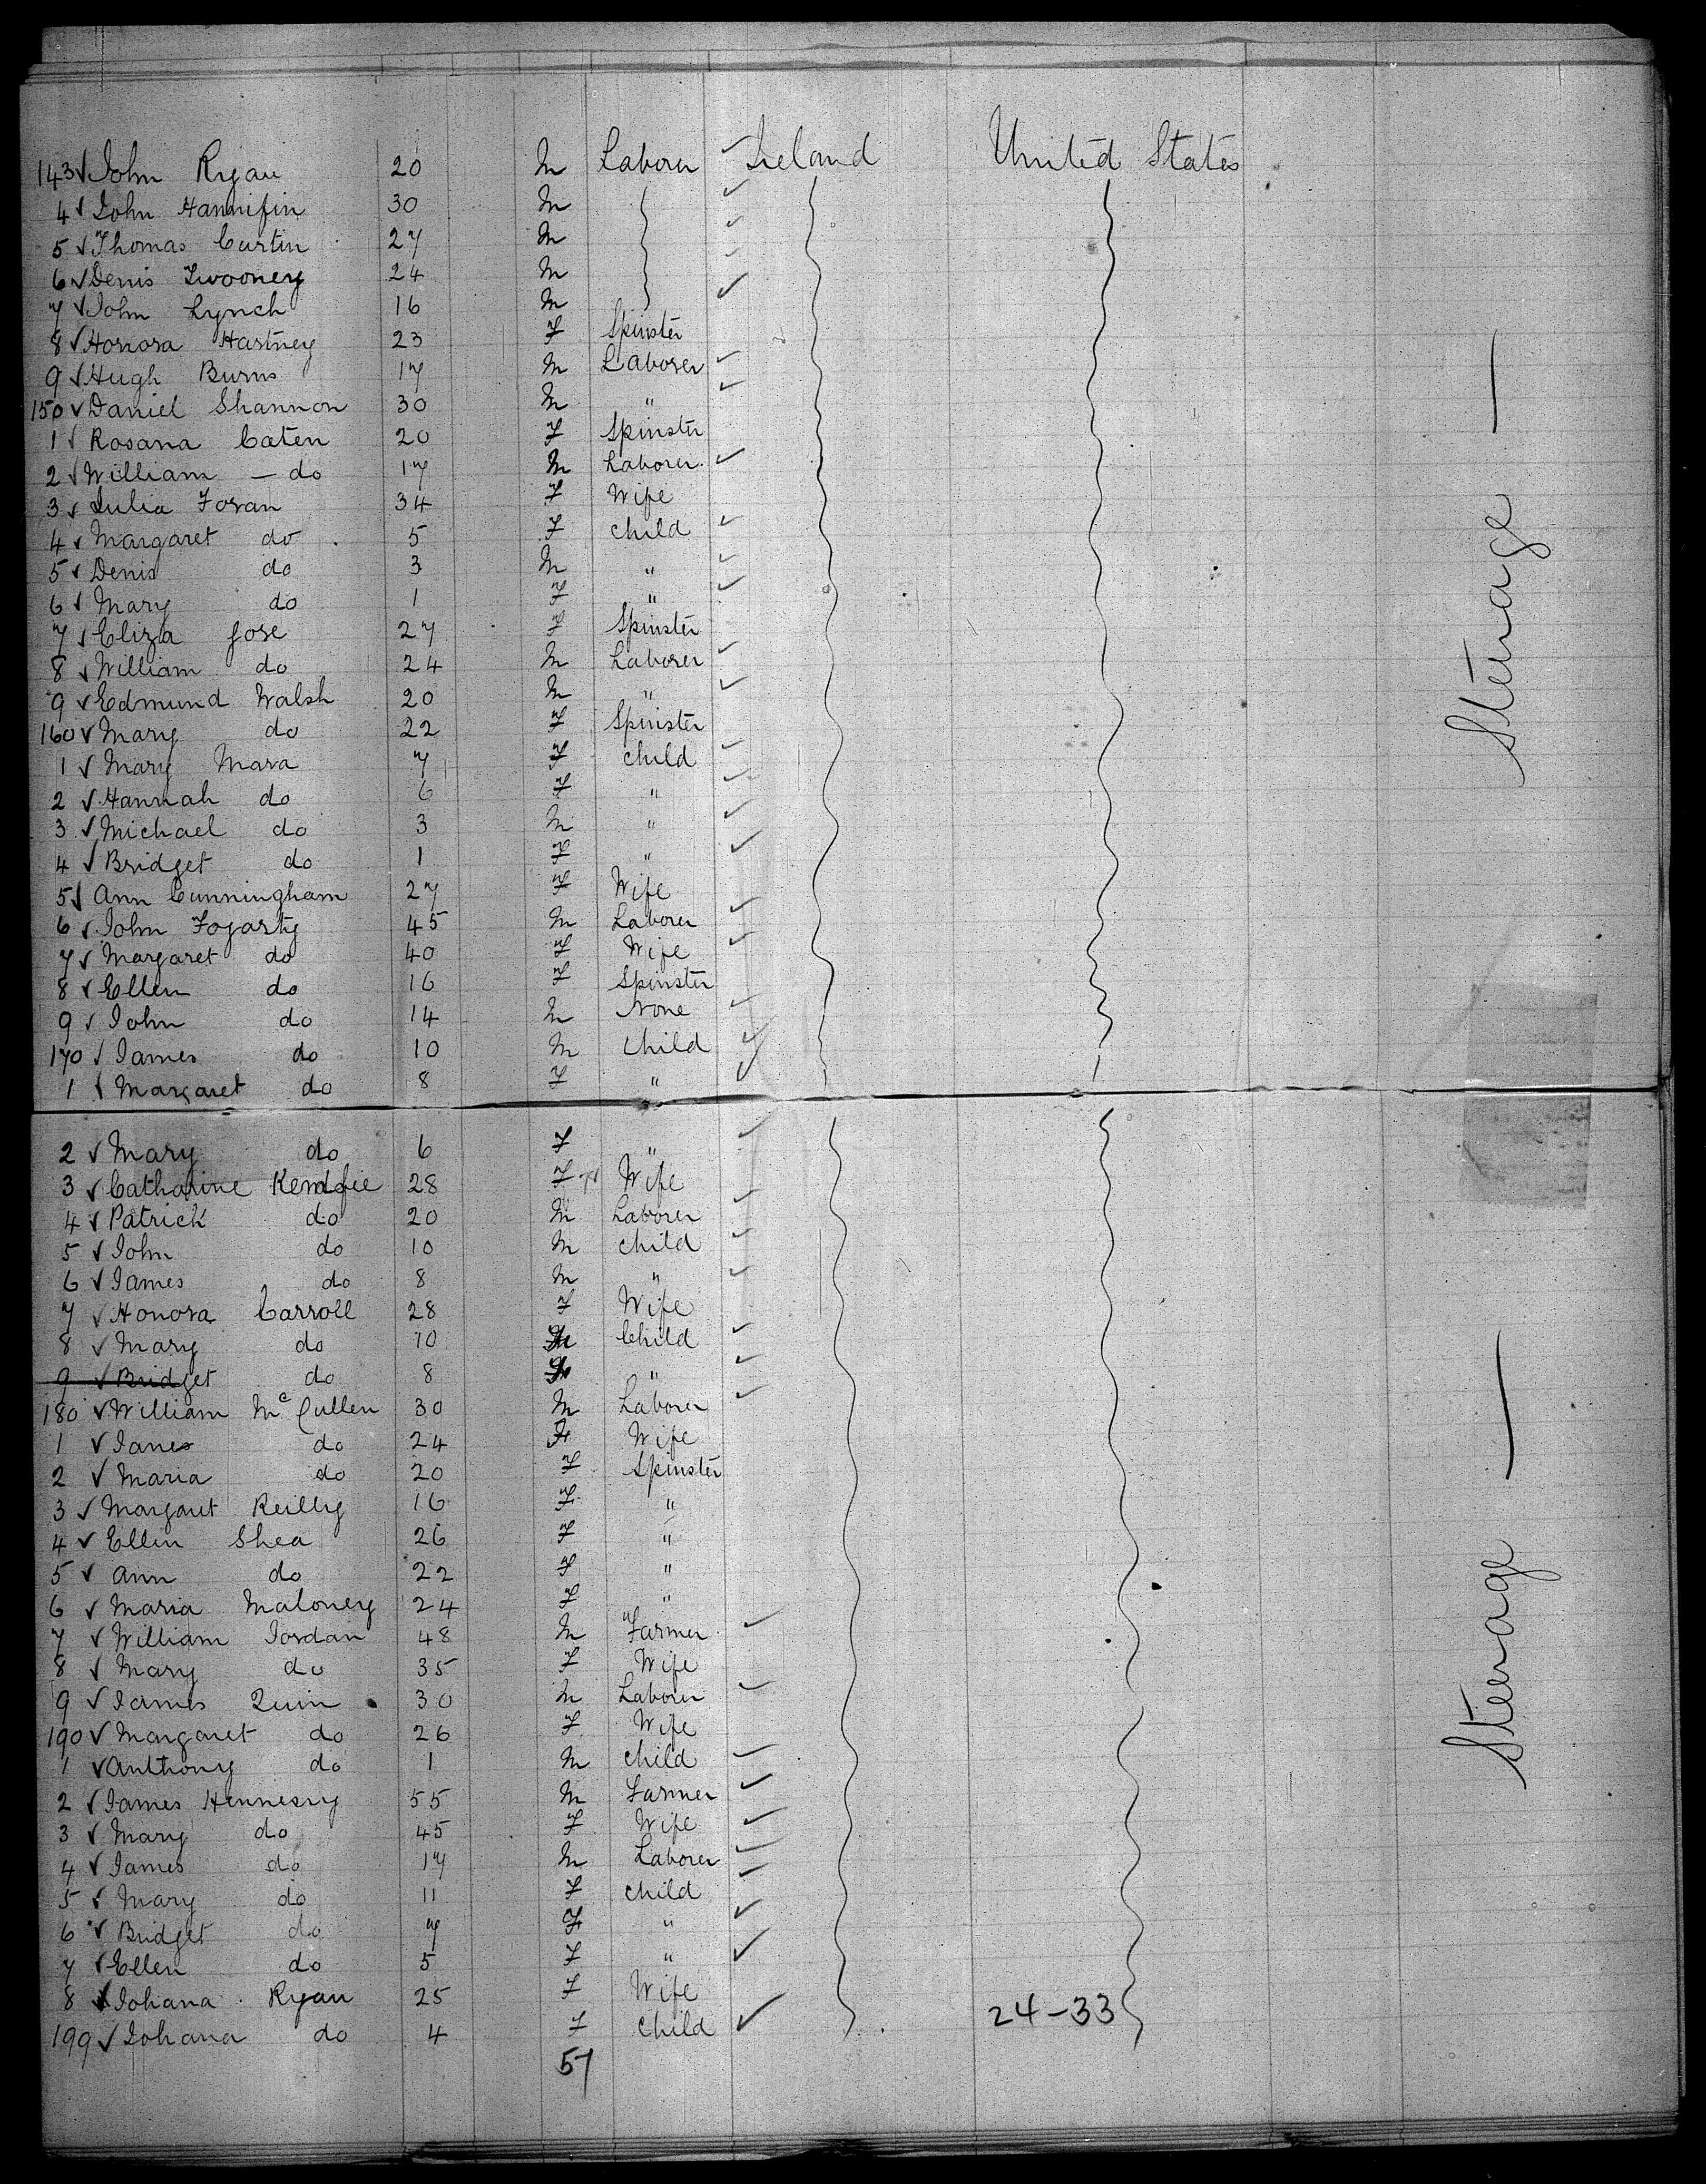 143 √ John Ryan 20 M Laborer ✓ Ireland United States
4 √ John Hannifin 30 M ✓
5 √ Thomas Curtin 27 M ✓
6 √ Denis Twooney 24 M ✓
7 √ John Lynch 16 M ✓
8 √ Honora Hartney 23 F Spinster
9 √ Hugh Burns 17 M Laborer ✓
150 √ Daniel Shannon 30 M " ✓
1 √ Rosana Caten 20 F Spinster
2 √ William — do 17 M Laborer ✓
3 √ Julia Foran 34 F Wife
4 √ Margaret do 5 F Child ✓
5 √ Denis do 3 M " ✓
6 √ Mary do 1 F " ✓
7 √ Eliza Gore 27 F Spinster
8 √ William do 24 M Laborer ✓
9 √ Edmund Walsh 20 M " ✓
160 √ Mary do 22 F Spinster
1 √ Mary Mara 7 F Child ✓
2 √ Hannah do 6 F " ✓
3 √ Michael do 3 M " ✓
4 √ Bridget do 1 F " ✓
5 √ Ann Cunningham 27 F Wife
6 √ John Fogarty 45 M Laborer ✓
7 √ Margaret do 40 F Wife ✓
8 √ Ellen do 16 F Spinster
9 √ John do 14 M None ✓
170 √ James do 10 M Child ✓
1 √ Margaret do 8 F " ✓
Steerage —
2 √ Mary do 6 F " ✓
3 √ Catharine 28 F Wife
4 √ Patrick do 20 M Laborer ✓
5 √ John do 10 M Child ✓
6 √ James do 8 M " ✓
7 √ Honora Carroll 28 F Wife
8 √ Mary do 10 Child ✓
9 √ Bridget do 8 " ✓
180 √ William McCullen 30 M Laborer ✓
1 √ Jane do 24 F Wife
2 √ Maria do 20 F Spinster
3 √ Margaret Reilly 16 F "
4 √ Ellen Shea 26 F "
5 √ Ann do 22 F "
6 √ Maria Maloney 24 F "
7 √ William Jordan 48 M Farmer ✓
8 √ Mary do 35 F Wife
9 √ James Quin 30 M Laborer ✓
190 √ Margaret do 26 F Wife
1 √ Anthony do 1 M Child ✓
2 √ James Hennessy 55 M Farmer ✓
3 √ Mary do 45 F Wife ✓
4 √ James do 17 M Laborer ✓
5 √ Mary do 11 F Child ✓
6 √ Bridget do 7 F " ✓
7 √ Ellen do 5 F " ✓
8 √ Johana Ryan 25 F Wife
199 √ Johana do 4 F Child ✓ 24-33
57
Steerage —